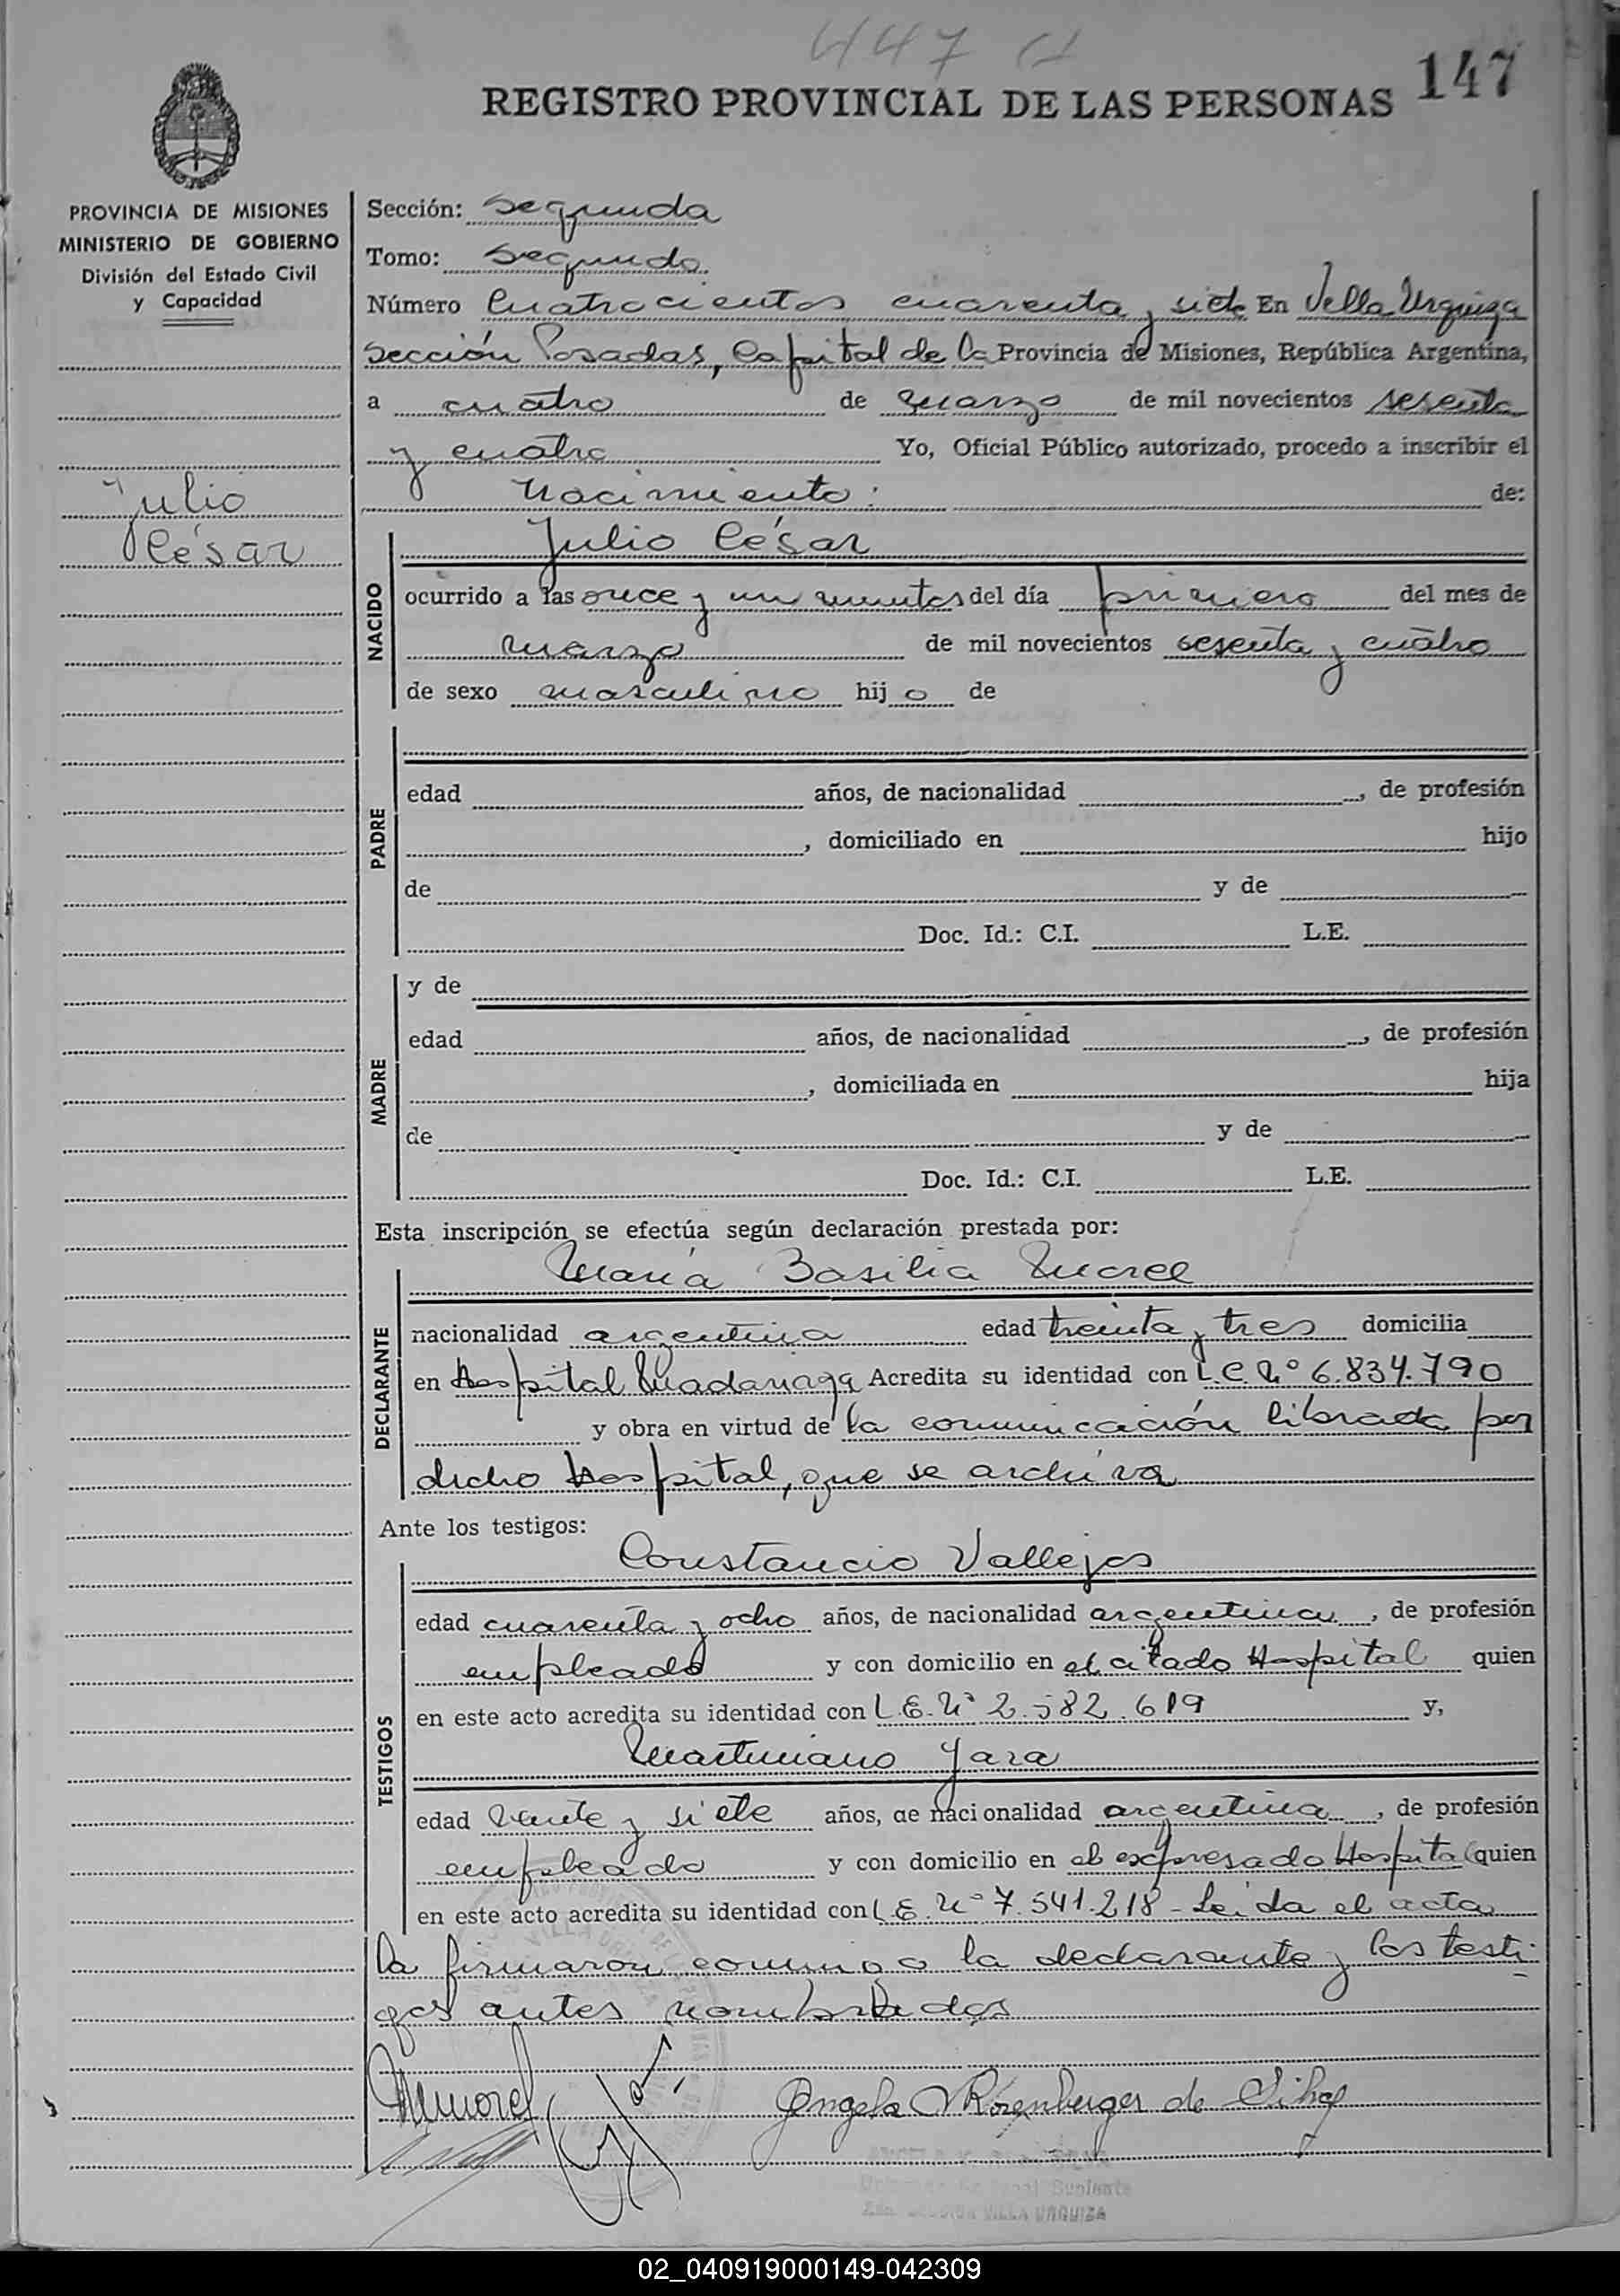 447
147
REGISTRO PROVINCIAL DE LAS PERSONAS
PROVINCIA DE MISIONES
MINISTERIO DE GOBIERNO
División del Estado Civil
y Capacidad
Julio
César
Sección: Segunda
Tomo: Segundo
Número Cuatrocientos cuarenta y siete En Villa Urquiza
Sección Posadas, Capital de la Provincia de Misiones, República Argentina,
a cuatro de marzo de mil novecientos sesenta
y cuatro Yo, Oficial Público autorizado, procedo a inscribir el
nacimiento: de:
NACIDO
Julio César
ocurrido a las once y un minutos del día primero del mes de
marzo de mil novecientos sesenta y cuatro
de sexo masculino hijo de
PADRE
edad años, de nacionalidad , de profesión
, domiciliado en hijo
de y de
Doc. Id.: C.I. L.E.
MADRE
y de
edad años, de nacionalidad , de profesión
, domiciliada en hija
de y de
Doc. Id.: C.I. L.E.
Esta inscripción se efectúa según declaración prestada por:
DECLARANTE
María Basilia Morel
nacionalidad argentina edad treinta y tres domicilia
en Hospital Madariaga Acredita su identidad con L.C. Nº 6.834.790
y obra en virtud de la comunicación librada por
dicho Hospital, que se archiva
Ante los testigos:
TESTIGOS
Constancio Vallejos
edad cuarenta y ocho años, de nacionalidad argentina , de profesión
empleado y con domicilio en el citado Hospital quien
en este acto acredita su identidad con L.E. Nº 2.582.619 y,
Martiniano Jara
edad veinte y siete años, de nacionalidad argentina , de profesión
empleado y con domicilio en el expresado Hospital quien
en este acto acredita su identidad con L.E. Nº 7.541.218 - Leida el acta
la firmaron conmigo la declarante y los testi-
gos antes nombrados
Angela M Rosenberger de Silva
Suplente
VILLA URQUIZA
02_040919000149-042309